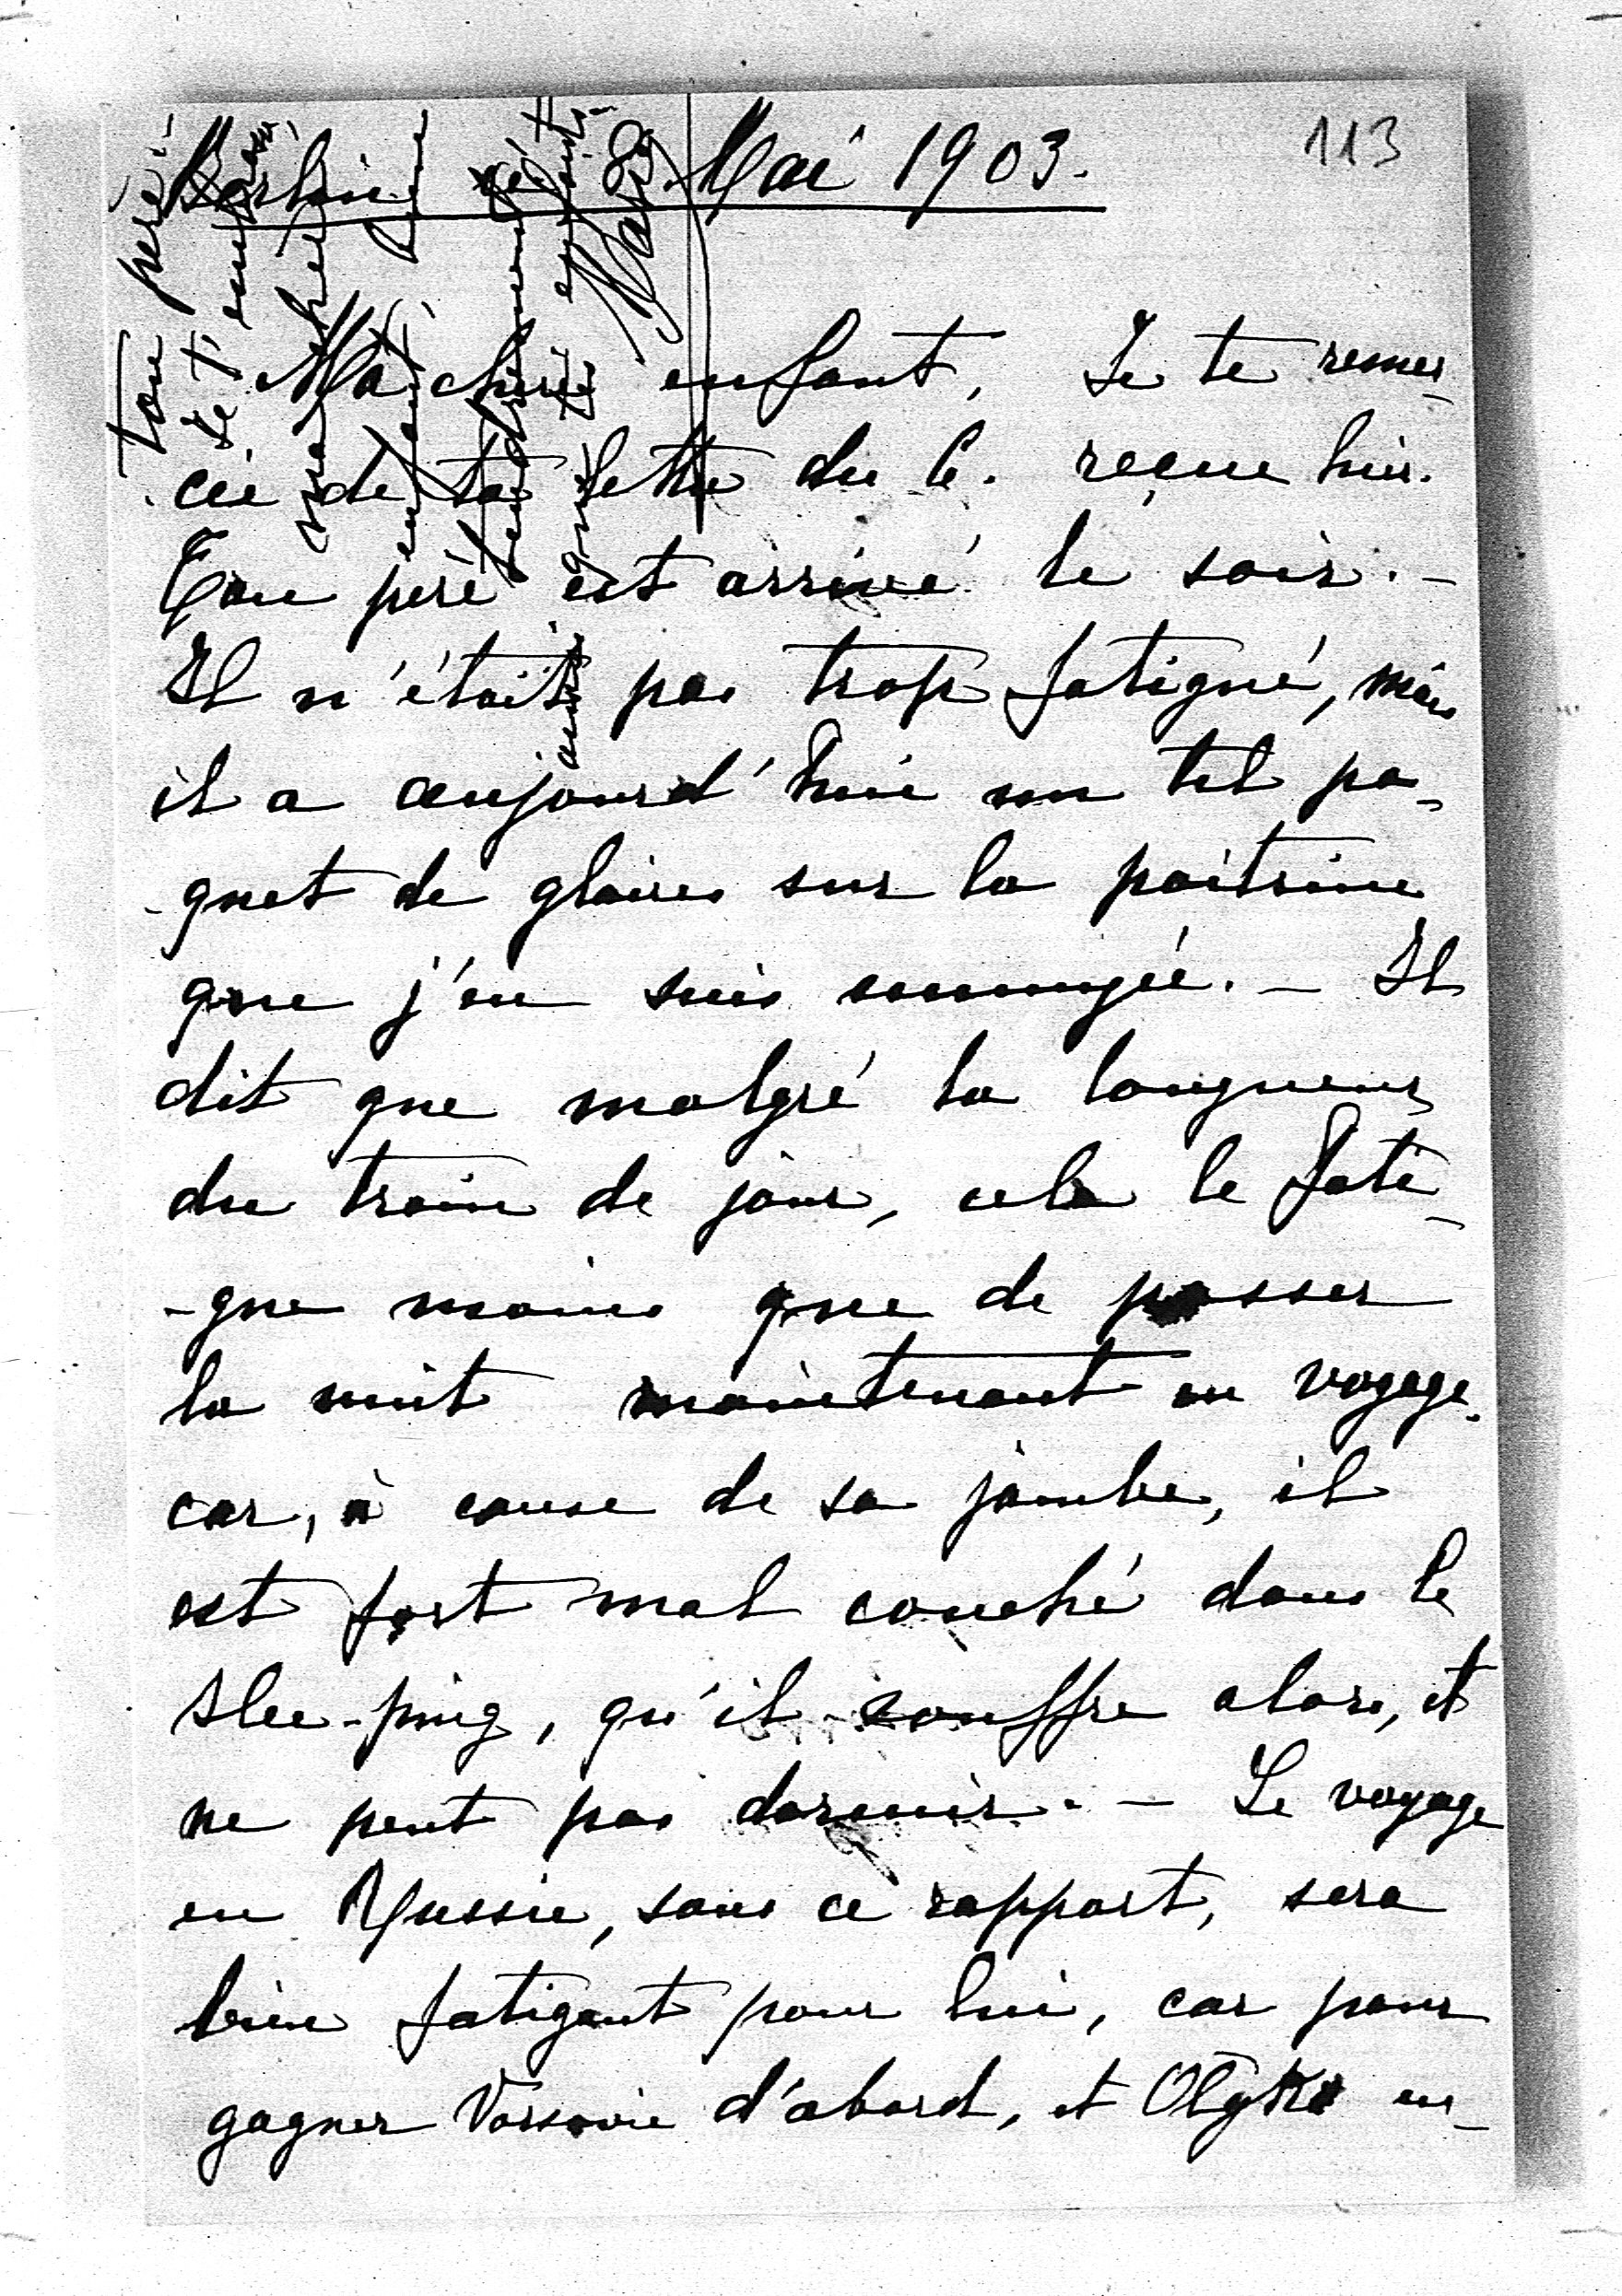 113
Berlin ce 8 Mai 1903.
Ma chère enfant, Je te remer-
cie de ta lettre du 6. reçue hier.
Ton père est arrivé le soir. -
Il n'était pas trop fatigué, mais
il a aujourd'hui un tel pa-
-quet de glaires sur la poitrine
que j'en suis ennuyée. - Il
dit que malgré la longueur
du train de jour, cela le fati-
-gue moins que de passer
la nuit maintenant en voyage.
car, à cause de sa jambe, il
est fort mal couché dans le
slee-ping, qu'il souffre alors, et
ne peut pas dormir. - Le voyage
en Russie, sous ce rapport, sera
bien fatigant pour lui, car pour
gagner Varsovie d'abord, et Olyka en-
Ton père
et t'embrasse
ma chère
enfant
tendrement et